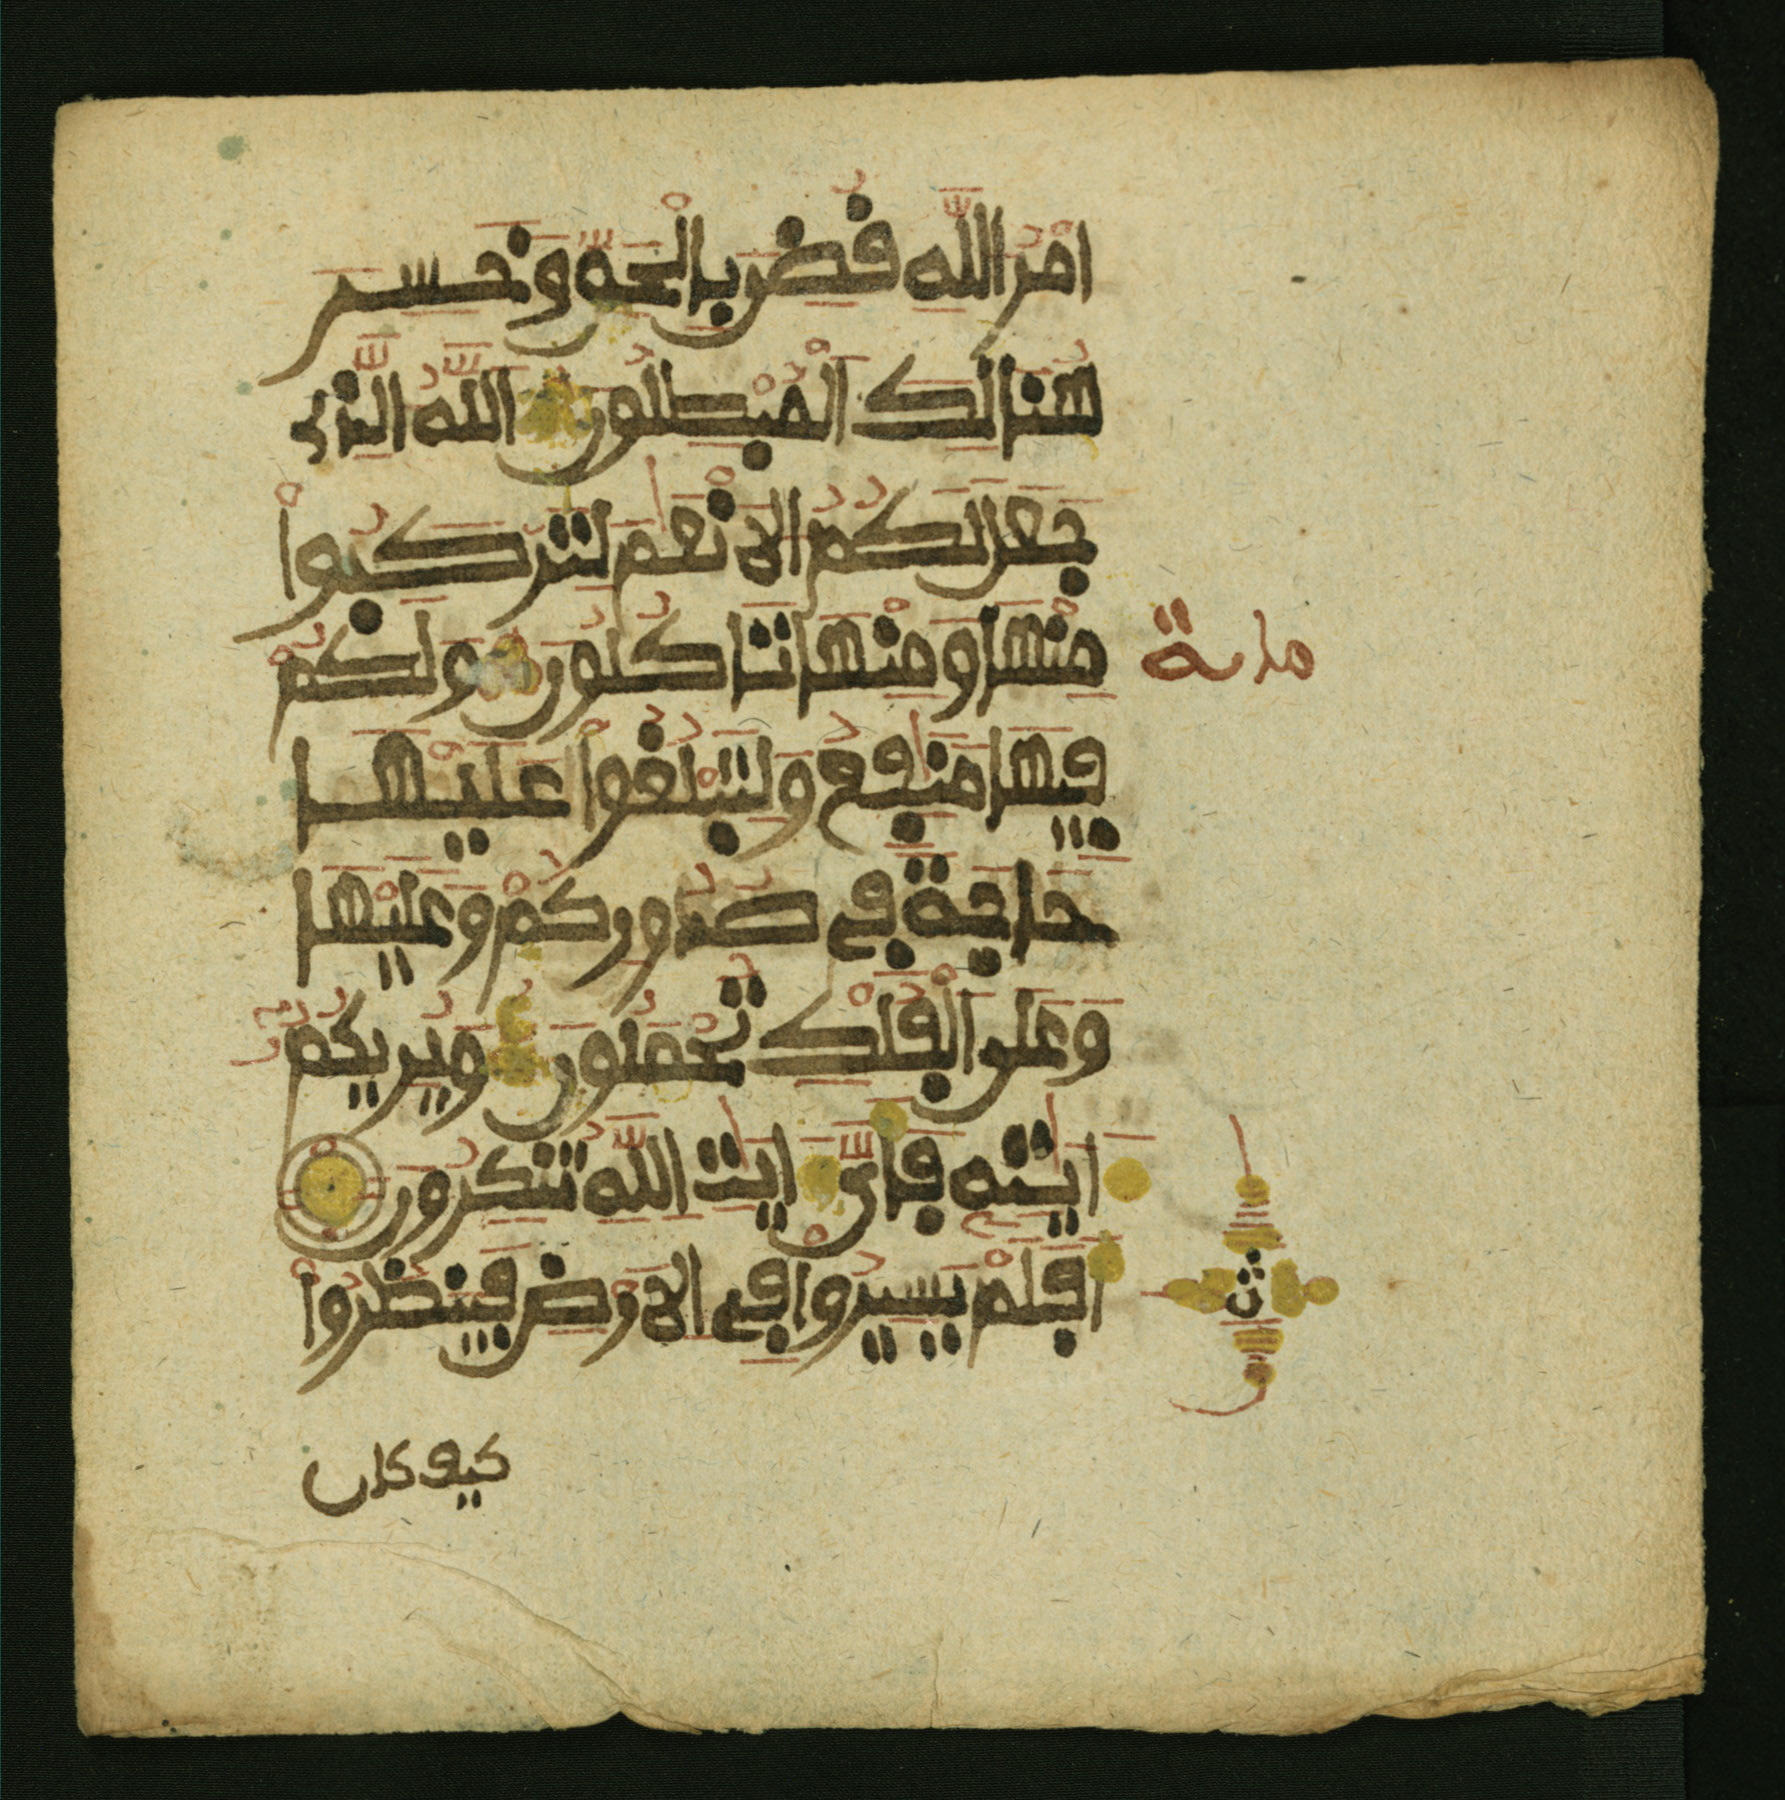 امر الله قضي بالحق وخسر
هنالك المبطلون الله الذي
جعل لكم الانعم لتركبوا
منها ومنها تاكلون ولكم
مائة
فيها منفع ولتبلغوا عليها
حاجة في صدوركم وعليها
وعلى الفلك تحملون ويريكم
ايته فاي ايت الله تنكرون
افلم يسيروا في الارض فينظروا
ث
كيف كان